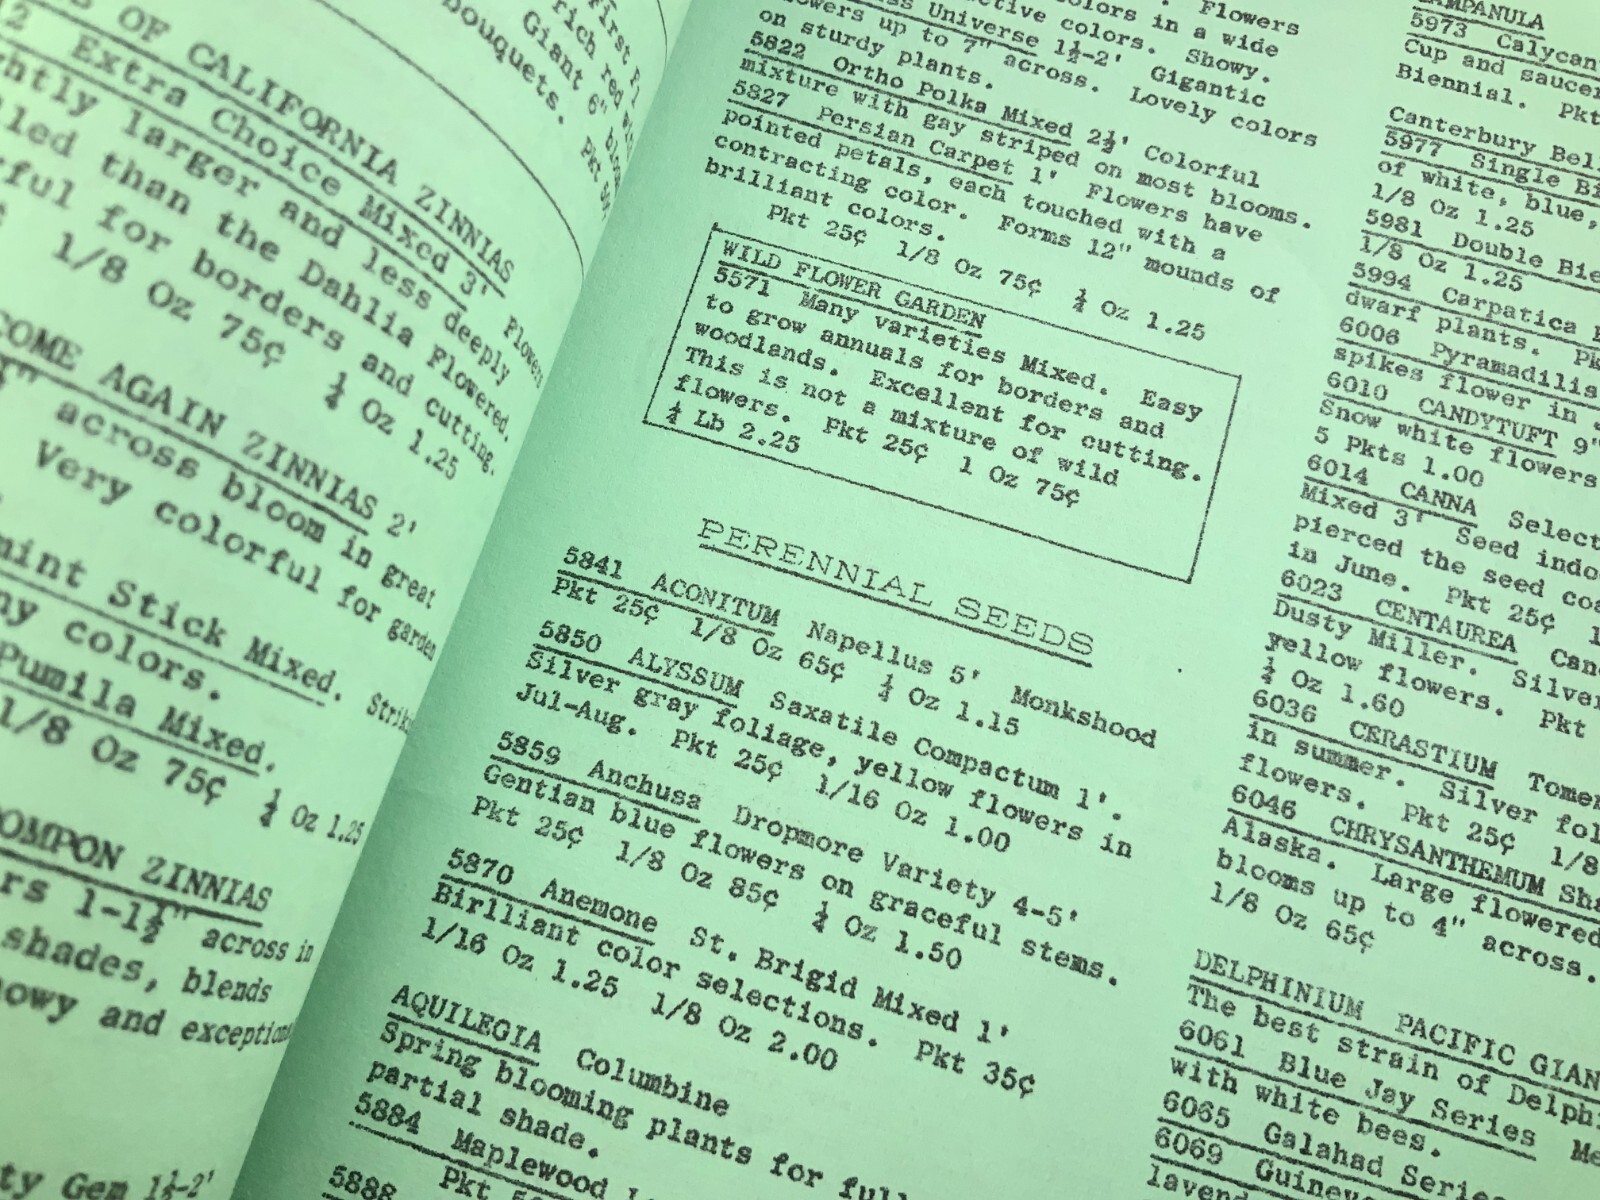 first Fl
rich red wit
Giant 6" bloo
bouquets. Pkt 50
OF CALIFORNIA ZINNIAS
2 Extra Choice Mixed 3' Flowers
ghtly larger and less deeply
led than the Dahlia Flowered.
ful for borders and cutting.
1/8 Oz 75¢ ¼ Oz 1.25
COME AGAIN ZINNIAS 2'
across bloom in great
Very colorful for garden
mint Stick Mixed. Striki
ny colors.
Pumila Mixed.
1/8 Oz 75¢ ¼ Oz 1.25
OMPON ZINNIAS
rs 1-1½" across in
shades, blends
howy and exceptional
ty Gem 1½-2'
Flowers
colors in a wide
ctive colors. Showy.
ss Universe 1½-2' Gigantic
flowers up to 7" across. Lovely colors
on sturdy plants.
5822 Ortho Polka Mixed 2½' Colorful
mixture with gay striped on most blooms.
5827 Persian Carpet 1' Flowers have
pointed petals, each touched with a
contracting color. Forms 12" mounds of
brilliant colors.
Pkt 25¢ 1/8 Oz 75¢ ¼ Oz 1.25
WILD FLOWER GARDEN
5571 Many varieties Mixed. Easy
to grow annuals for borders and
woodlands. Excellent for cutting.
This is not a mixture of wild
flowers. Pkt 25¢ 1 Oz 75¢
¼ Lb 2.25
PERENNIAL SEEDS
5841 ACONITUM Napellus 5' Monkshood
Pkt 25¢ 1/8 Oz 65¢ ¼ Oz 1.15
5850 ALYSSUM Saxatile Compactum 1'.
Silver gray foliage, yellow flowers in
Jul-Aug. Pkt 25¢ 1/16 Oz 1.00
5859 Anchusa Dropmore Variety 4-5'
Gentian blue flowers on graceful stems.
Pkt 25¢ 1/8 Oz 85¢ ¼ Oz 1.50
5870 Anemone St. Brigid Mixed 1'
Birlliant color selections. Pkt 35¢
1/16 Oz 1.25 1/8 Oz 2.00
AQUILEGIA Columbine
Spring blooming plants for full
partial shade.
5884 Maplewood
Pkt
5888
CAMPANULA
5973 Calycan
Cup and saucer
Biennial. Pkt
Canterbury Bel
5977 Single Bi
of white, blue,
1/8 Oz 1.25
5981 Double Bie
1/8 Oz 1.25
5994 Carpatica
dwarf plants. Pk
6006 Pyramadilis
spikes flower in
6010 CANDYTUFT 9"
Snow white flowers
5 Pkts 1.00
6014 CANNA Select
Mixed 3' Seed indo
pierced the seed coa
in June. Pkt 25¢ 1
6023 CENTAUREA Can
Dusty Miller. Silver
yellow flowers. Pkt
¼ Oz 1.60
6036 CERASTIUM Tomen
in summer. Silver fol
flowers. Pkt 25¢ 1/8
6046 CHRYSANTHEMUM Sha
Alaska. Large flowered
blooms up to 4" across.
1/8 Oz 65¢
DELPHINIUM PACIFIC GIAN
The best strain of Delphi
6061 Blue Jay Series Me
with white bees.
6065 Galahad Serie
6069 Guinev
lavend